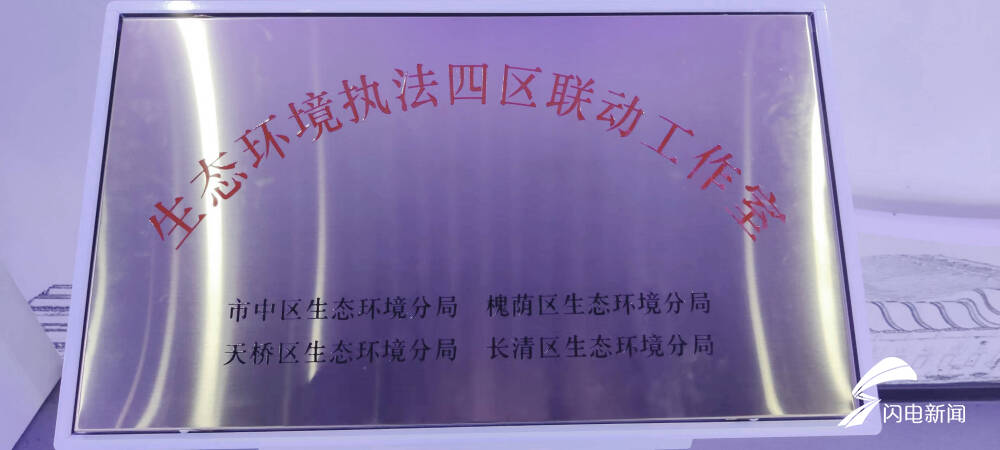 生态环境执法四区联动工作室
市中区生态环境分局 槐荫区生态环境分局
天桥区生态环境分局 长清区生态环境分局
闪电新闻